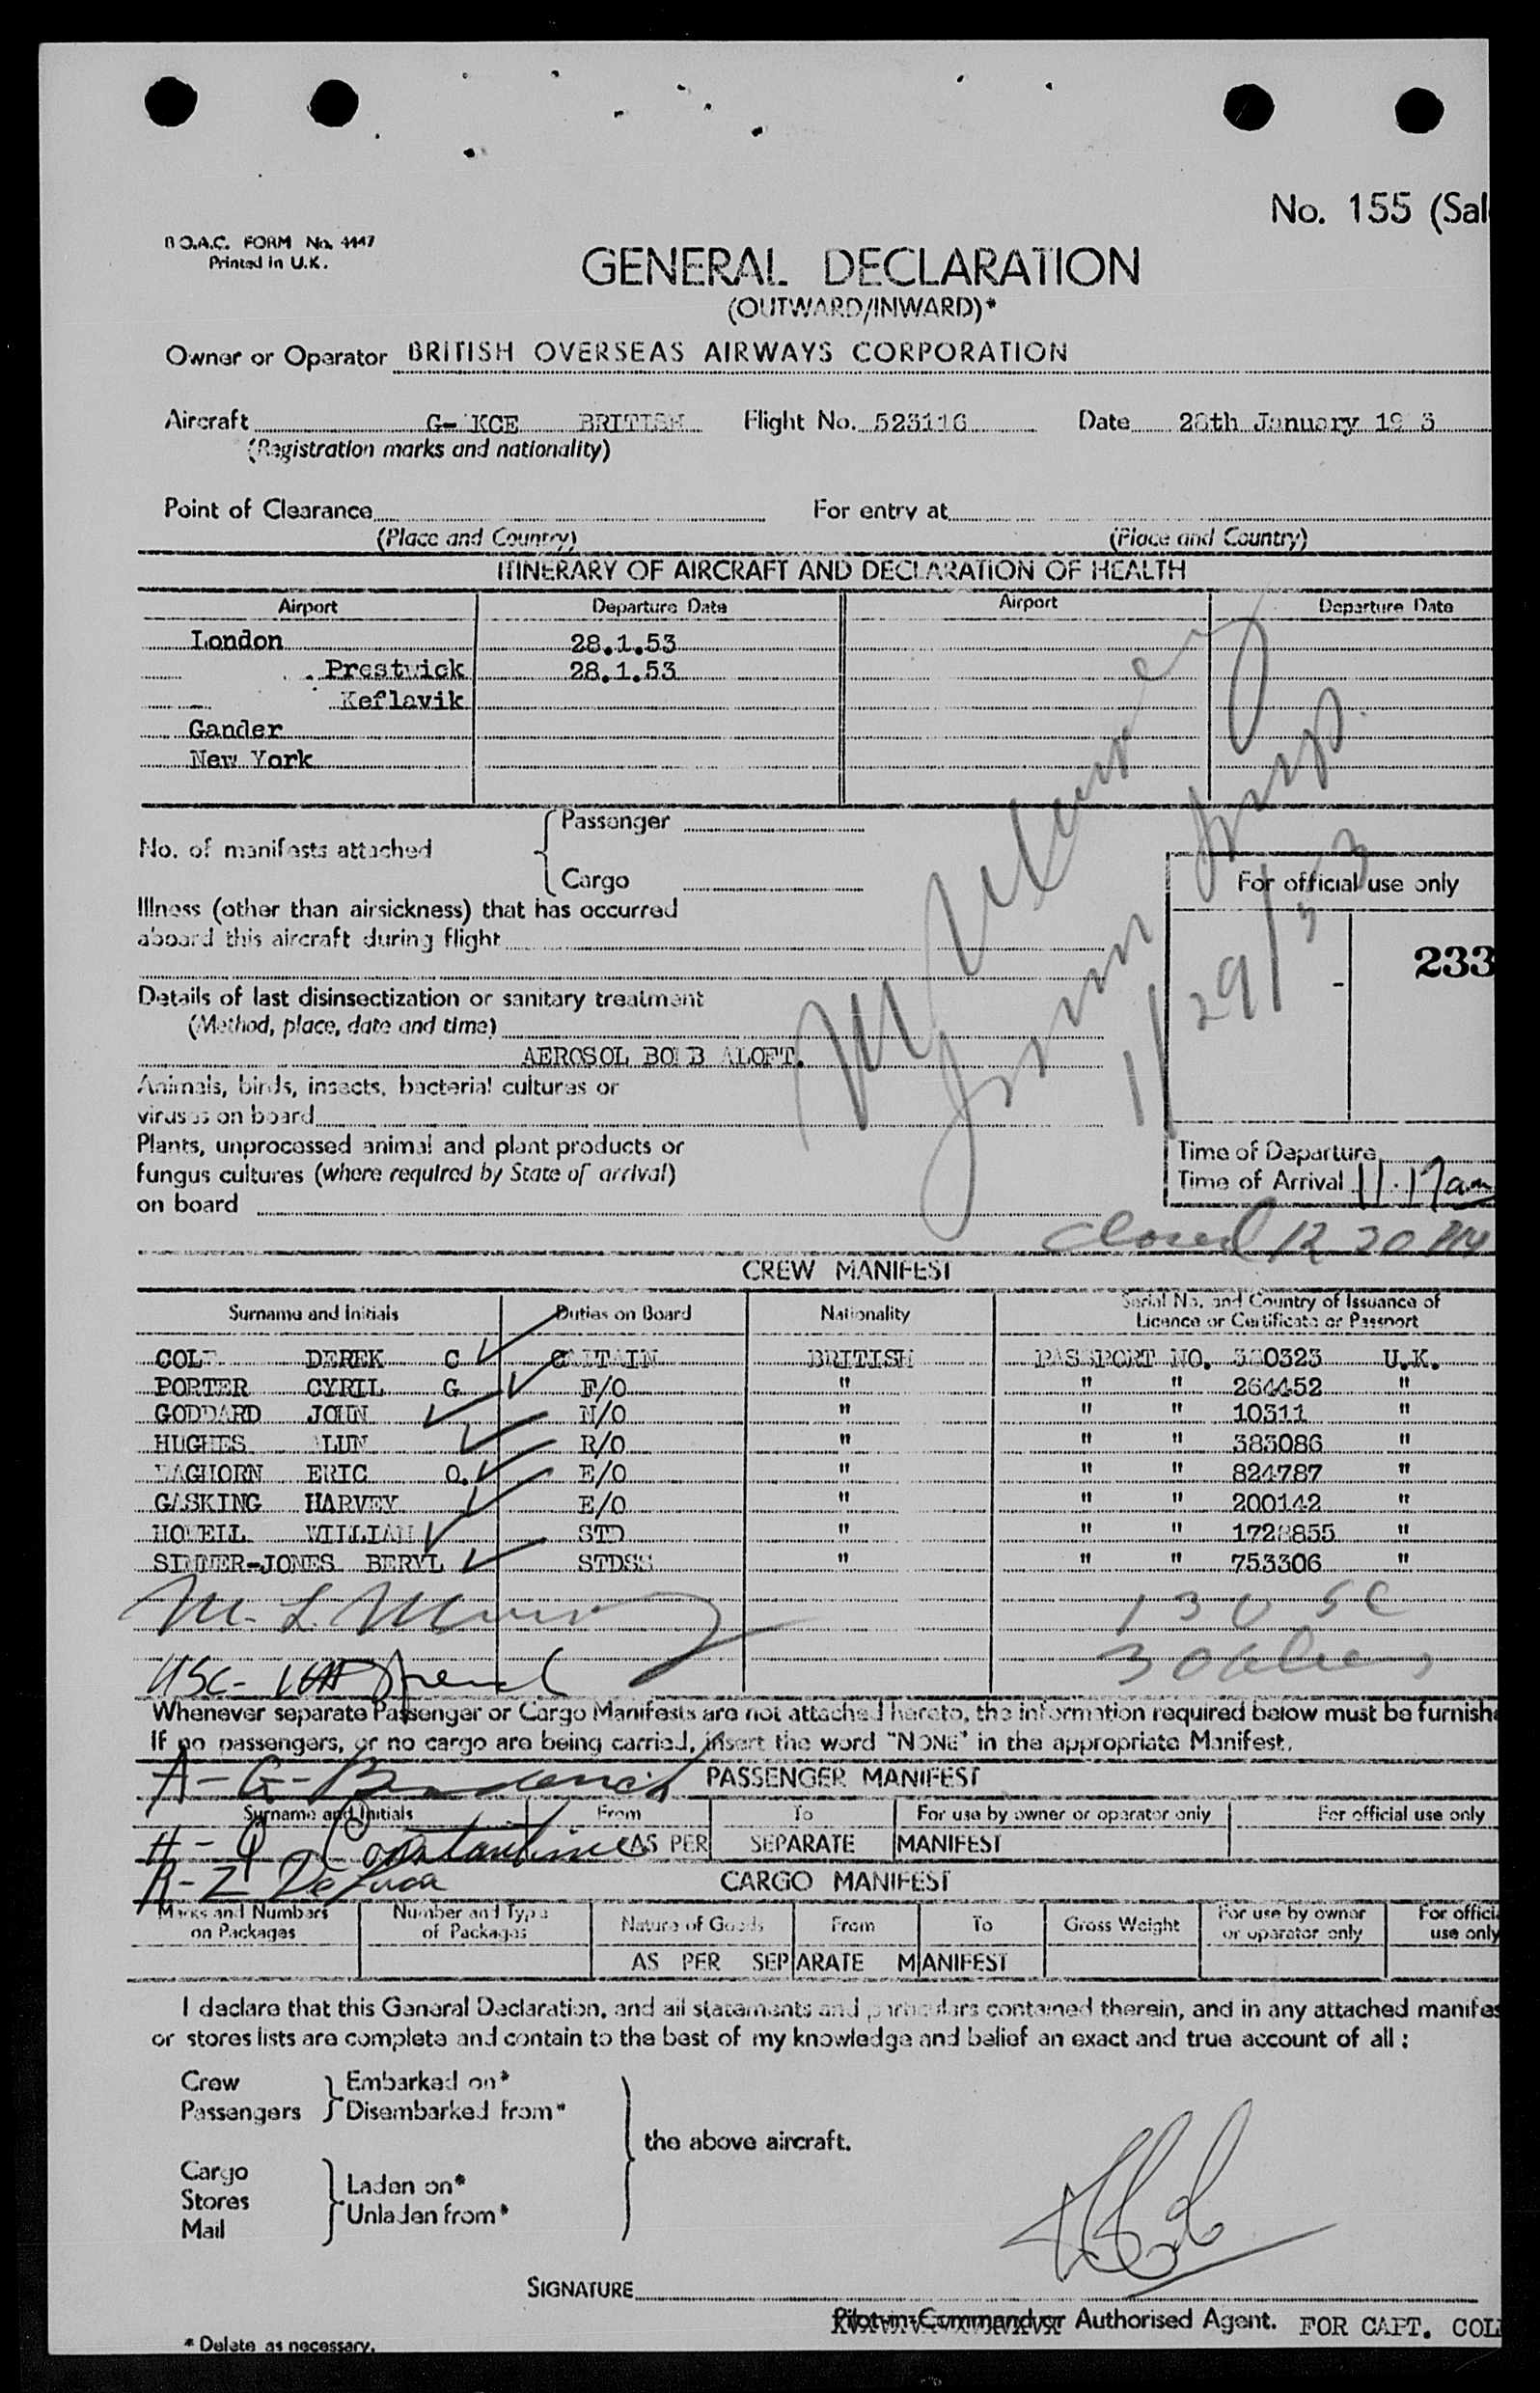 No. 155 (Sal
B.O.A.C. FORM No. 4447
Printed in U.K.
GENERAL DECLARATION
(OUTWARD/INWARD)*
Owner or Operator BRITISH OVERSEAS AIRWAYS CORPORATION
Aircraft G- KCE BRITISH Flight No. 523116 Date 28th January 19 3
(Registration marks and nationality)
Point of Clearance For entry at
(Place and Country) (Place and Country)
ITINERARY OF AIRCRAFT AND DECLARATION OF HEALTH
Airport Departure Date Airport Departure Date
London 28.1.53
Prestwick 28.1.53
Keflavik
Gander
New York
No. of manifests attached { Passenger
Cargo
For official use only
Illness (other than airsickness) that has occurred
aboard this aircraft during flight
233
Details of last disinsectization or sanitary treatment
(Method, place, date and time)
1/29/53
AEROSOL BOMB ALOFT.
Animals, birds, insects, bacterial cultures or
viruses on board
Plants, unprocessed animal and plant products or
fungus cultures (where required by State of arrival)
on board
Time of Departure
Time of Arrival 11.17am
Closed 12 20 PM
CREW MANIFEST
Surname and Initials Duties on Board Nationality Serial No. and Country of Issuance of
Licence or Certificate or Passport
COLE DEREK C CAPTAIN BRITISH PASSPORT NO. 380323 U.K.
PORTER CYRIL G F/O " " " 264452 "
GODDARD JOHN N/O " " " 10311 "
HUGHES ALUN R/O " " " 383086 "
WAGHORN ERIC O. E/O " " " 824787 "
GASKING HARVEY E/O " " " 200142 "
HOWELL WILLIAM STD " " " 1728855 "
SIMNER-JONES BERYL STDSS " " " 753306 "
M. L.
13 USC
30 aliens
USC-
Whenever separate Passenger or Cargo Manifests are not attached hereto, the information required below must be furnish
If no passengers, or no cargo are being carried, insert the word "NONE" in the appropriate Manifest.
A-G-
PASSENGER MANIFEST
Surname and Initials From To For use by owner or operator only For official use only
H-Q Constantine AS PER SEPARATE MANIFEST
R-Z DeLuca
CARGO MANIFEST
Marks and Numbers on Packages Number and Type of Packages Nature of Goods From To Gross Weight For use by owner or operator only For offici use only
AS PER SEPARATE MANIFEST
I declare that this General Declaration, and all statements and particulars contained therein, and in any attached manifes
or stores lists are complete and contain to the best of my knowledge and belief an exact and true account of all :
Crew } Embarked on*
Passengers } Disembarked from*
the above aircraft.
Cargo
Stores } Laden on*
Mail } Unladen from*
SIGNATURE
Pilot-in-Command or Authorised Agent. FOR CAPT. COL
* Delete as necessary.